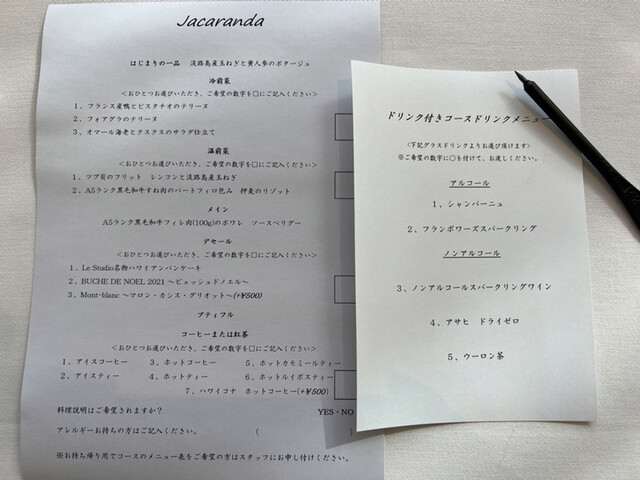 Jacaranda
はじまりの一品　淡路島産玉ねぎと黄人参のポタージュ
冷前菜
＜おひとつお選びいただき、ご希望の数字を□にご記入ください＞
1、フランス産鴨とピスタチオのテリーヌ
2、フォアグラのテリーヌ
3、オマール海老とクスクスのサラダ仕立て
温前菜
＜おひとつお選びいただき、ご希望の数字を□にご記入ください＞
1、ツブ貝のフリット　レンコンと淡路島産玉ねぎ
2、A5ランク黒毛和牛すね肉のパートフィロ包み　押麦のリゾット
メイン
A5ランク黒毛和牛フィレ肉(100g)のポワレ　ソースペリグー
デセール
＜おひとつお選びいただき、ご希望の数字を□にご記入ください＞
1、Le Studio名物ハワイアンパンケーキ
2、BUCHE DE NOEL 2021 ～ビュッシュドノエル～
3、Mont-blanc ～マロン・カシス・グリオット～(+¥500)
プティフル
コーヒーまたは紅茶
＜おひとつお選びいただき、ご希望の数字を□にご記入ください＞
1、アイスコーヒー　3、ホットコーヒー　5、ホットカモミールティー
2、アイスティー　4、ホットティー　6、ホットルイボスティー
7、ハワイコナ　ホットコーヒー(+¥500)
料理説明はご希望されますか？　YES・NO
アレルギーお持ちの方はご記入ください。　(　)
※お持ち帰り用でコースのメニュー表をご希望の方はスタッフにお申し付けください。
ドリンク付きコースドリンクメニュー
＜下記グラスドリンクよりお選び頂けます＞
※ご希望の数字に○を付けて、お渡しください。
アルコール
1、シャンパーニュ
2、フランボワーズスパークリング
ノンアルコール
3、ノンアルコールスパークリングワイン
4、アサヒ　ドライゼロ
5、ウーロン茶